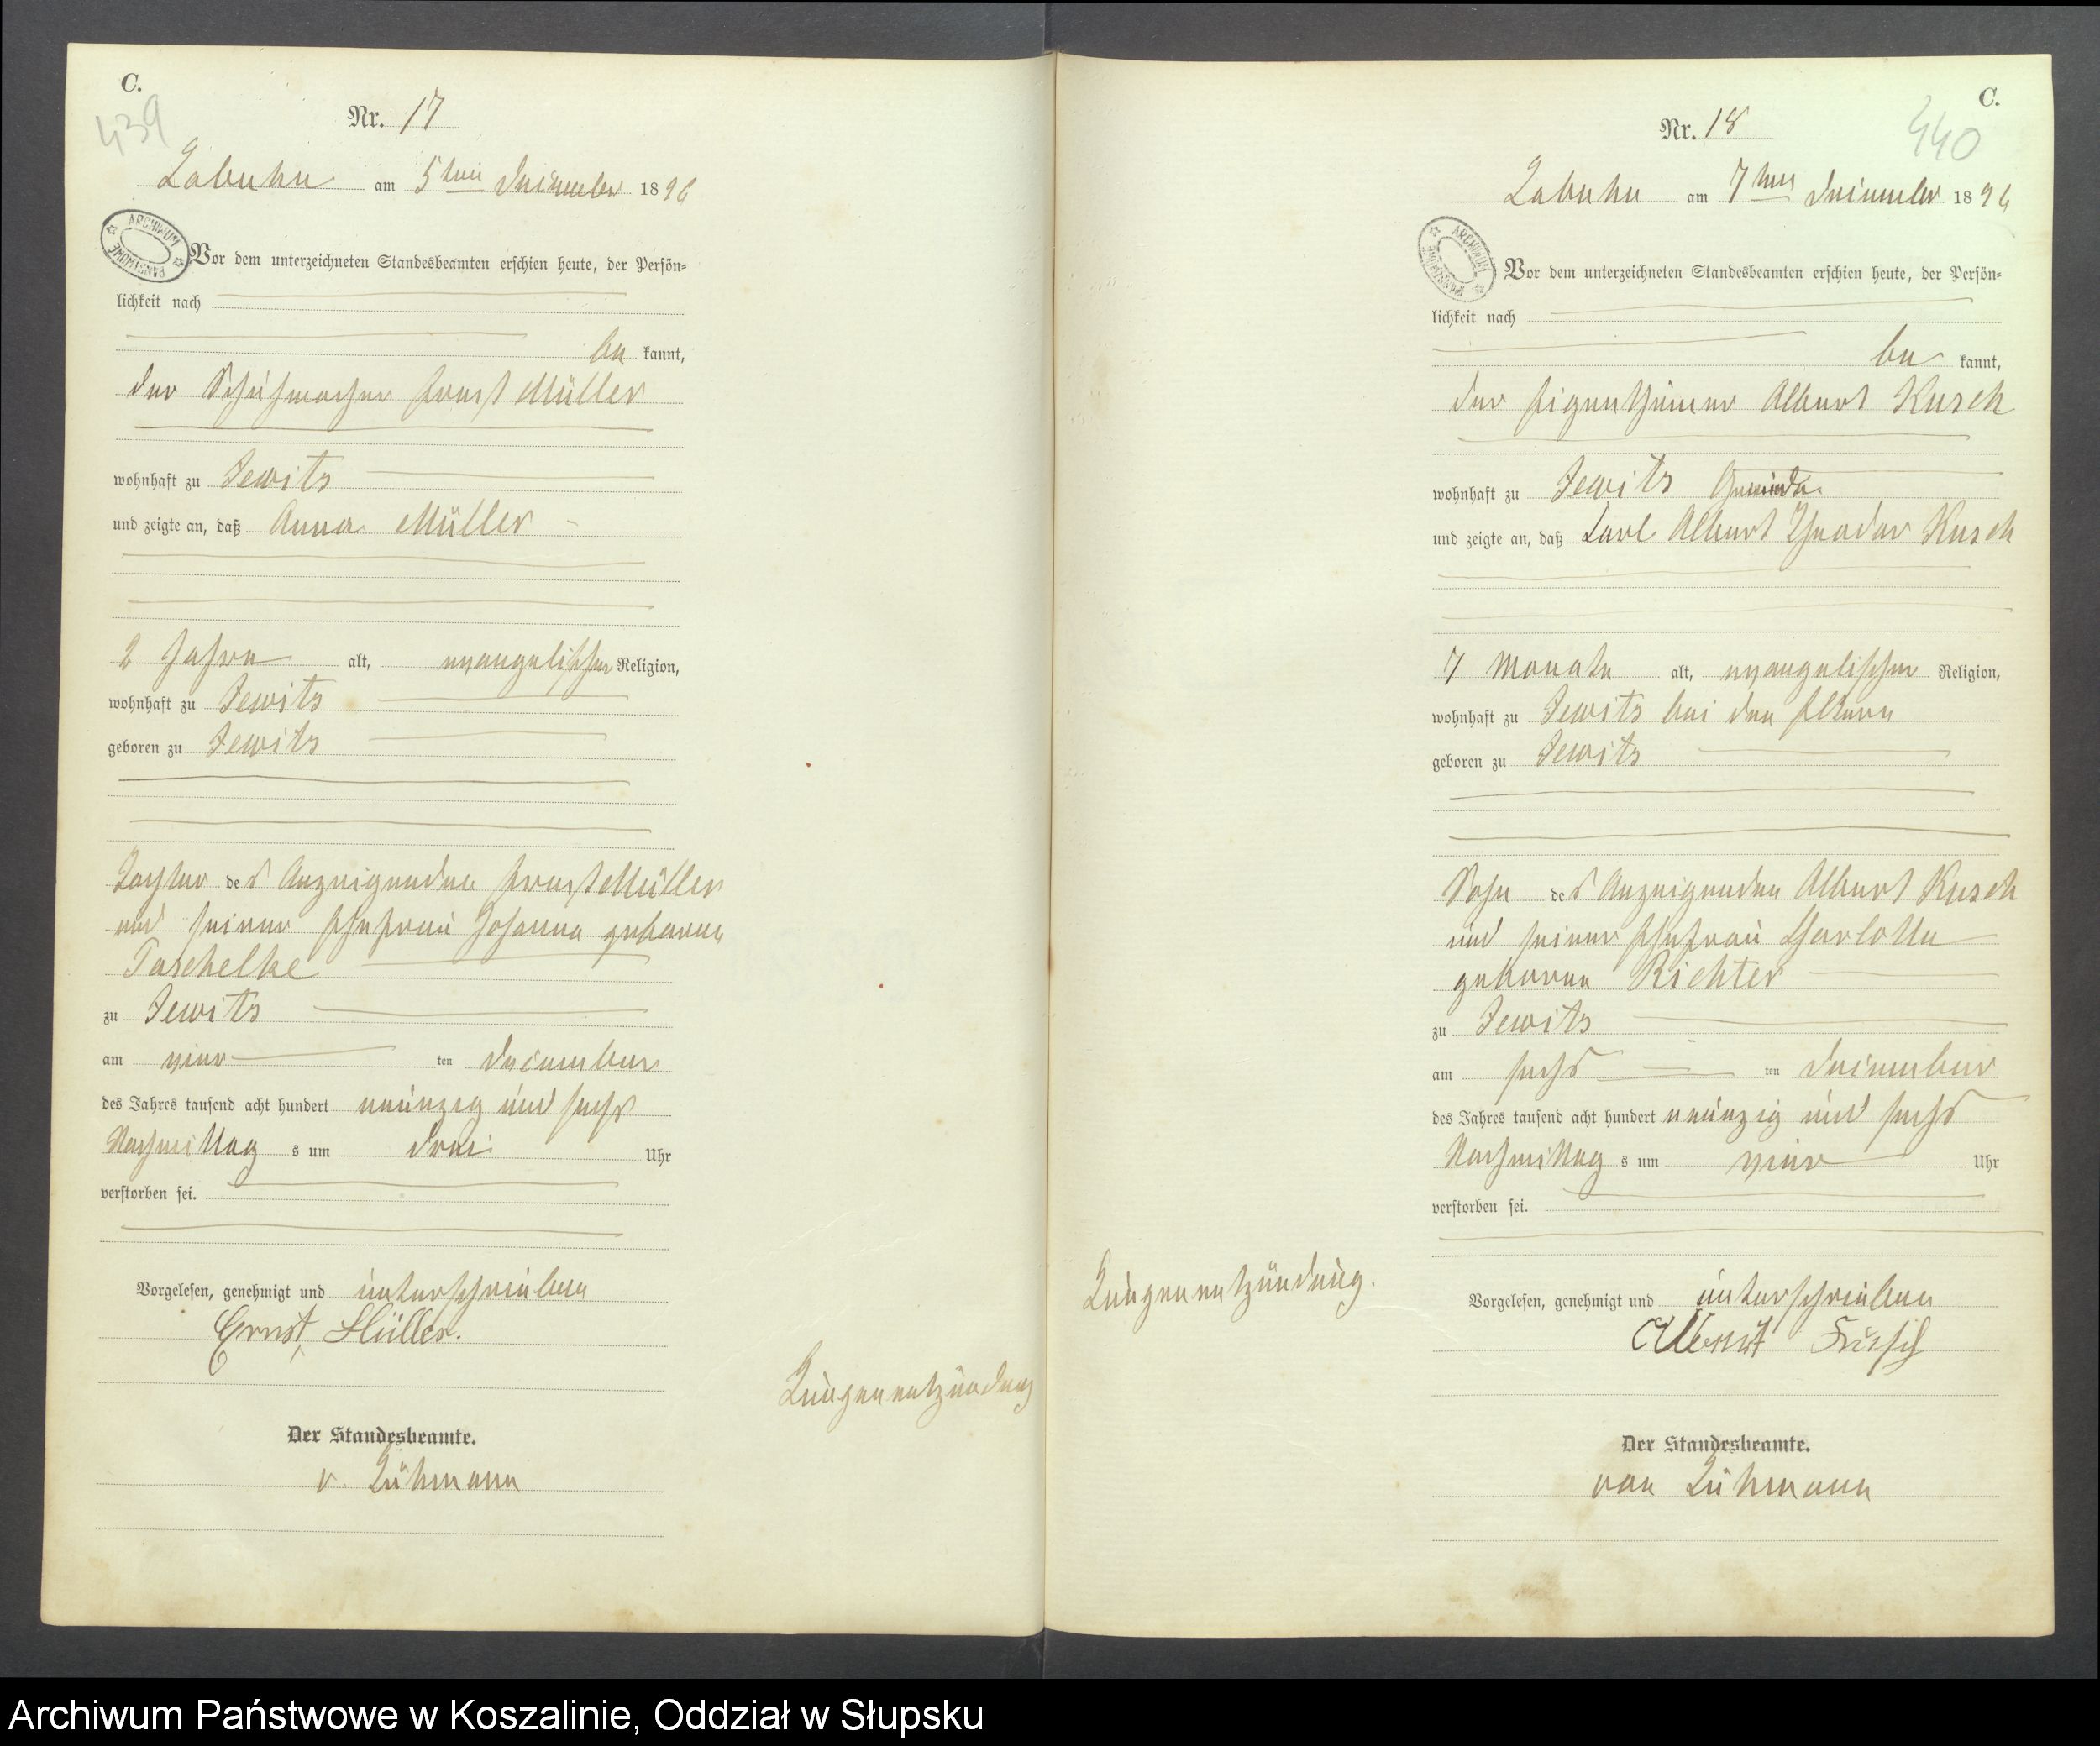 C.
439
Nr. 17
Labuhn am 5ten Dezember 1896
ARCHIWUM PAŃSTWOWE
Vor dem unterzeichneten Standesbeamten erschien heute, der Persön-
lichkeit nach
be kannt,
der Schuhmacher Ernst Müller
wohnhaft zu Jewitz
und zeigte an, daß Anna Müller
2 Jahre alt, evangelischer Religion,
wohnhaft zu Jewitz
geboren zu Jewitz
Tochter des Anzeigenden Ernst Müller
und seiner Ehefrau Johanna geborene
Taschelke
zu Jewitz
am vier ten Dezember
des Jahres tausend acht hundert neunzig und sechs
Nachmittag s um drei Uhr
verstorben sei.
Vorgelesen, genehmigt und unterschrieben
Ernst Müller.
Lungenentzündung
Der Standesbeamte.
v. Lühmann
C.
440
Nr. 18
Labuhn am 7ten Dezember 1896
ARCHIWUM PAŃSTWOWE
Vor dem unterzeichneten Standesbeamten erschien heute, der Persön-
lichkeit nach
be kannt,
der Eigenthümer Albert Kusch
wohnhaft zu Jewitz Gemeinde
und zeigte an, daß Carl Albert Theodor Kusch
7 Monate alt, evangelischer Religion,
wohnhaft zu Jewitz bei den Eltern
geboren zu Jewitz
Sohn des Anzeigenden Albert Kusch
und seiner Ehefrau Charlotte
geborene Richter
zu Jewitz
am sechs ten Dezember
des Jahres tausend acht hundert neunzig und sechs
Nachmittag s um vier Uhr
verstorben sei.
Lungenentzündung.
Vorgelesen, genehmigt und unterschrieben
Albert Kusch
Der Standesbeamte.
von Lühmann
Archiwum Państwowe w Koszalinie, Oddział w Słupsku